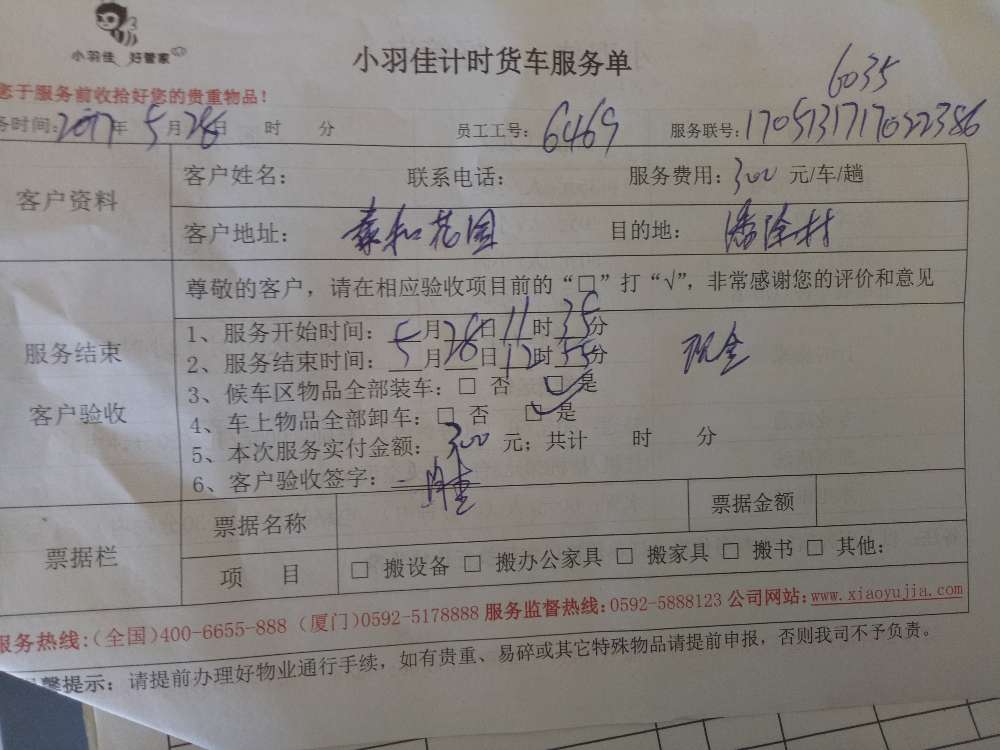 小羽佳 好管家
小羽佳计时货车服务单
6035
您于服务前收拾好您的贵重物品！
务时间：2017年5月28日 时 分 员工工号：6469 服务联号：
客户资料
客户姓名： 联系电话： 服务费用：300元/车/趟
客户地址：森和花园 目的地：潘涂村
服务结束
客户验收
尊敬的客户，请在相应验收项目前的“□”打“√”，非常感谢您的评价和意见
1、服务开始时间：5月28日11时35分
2、服务结束时间：5月28日12时35分 现金
3、候车区物品全部装车：□ 否 □ 是
4、车上物品全部卸车：□ 否 □ 是
5、本次服务实付金额：300元；共计 时 分
6、客户验收签字：
票据栏
票据名称 票据金额
项 目 □ 搬设备 □ 搬办公家具 □ 搬家具 □ 搬书 □ 其他：
服务热线：（全国）400-6655-888（厦门）0592-5178888 服务监督热线：0592-5888123 公司网站：www.xiaoyujia.com
馨提示：请提前办理好物业通行手续，如有贵重、易碎或其它特殊物品请提前申报，否则我司不予负责。